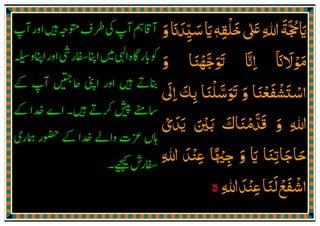 یَاحُجَّةَ اللهِ عَلٰی خَلْقِهٖ یَا سَیِّدَنَا وَ
مَوْلَانَاۤ اِنَّا تَوَجَّهْنَا وَ
اسْتَشْفَعْنَا وَ تَوَسَّلْنَا بِكَ اِلَی
اللهِ وَ قَدَّمْنَاكَ بَیْنَ یَدَیْ
حَاجَاتِنَا یَا وَ جِیْهًا عِنْدَ اللهِ
اشْفَعْ لَنَا عِنْدَ اللهِ
آقا ہم آپ کی طرف متوجہ ہیں اور آپ
کو بارگاہ الٰہی میں اپنا سفارشی اور اپنا وسیلہ
بناتے ہیں اور اپنی حاجتیں آپ کے
سامنے پیش کرتے ہیں۔ اے خدا کے
ہاں عزت والے خدا کے حضور ہماری
سفارش کیجیے۔